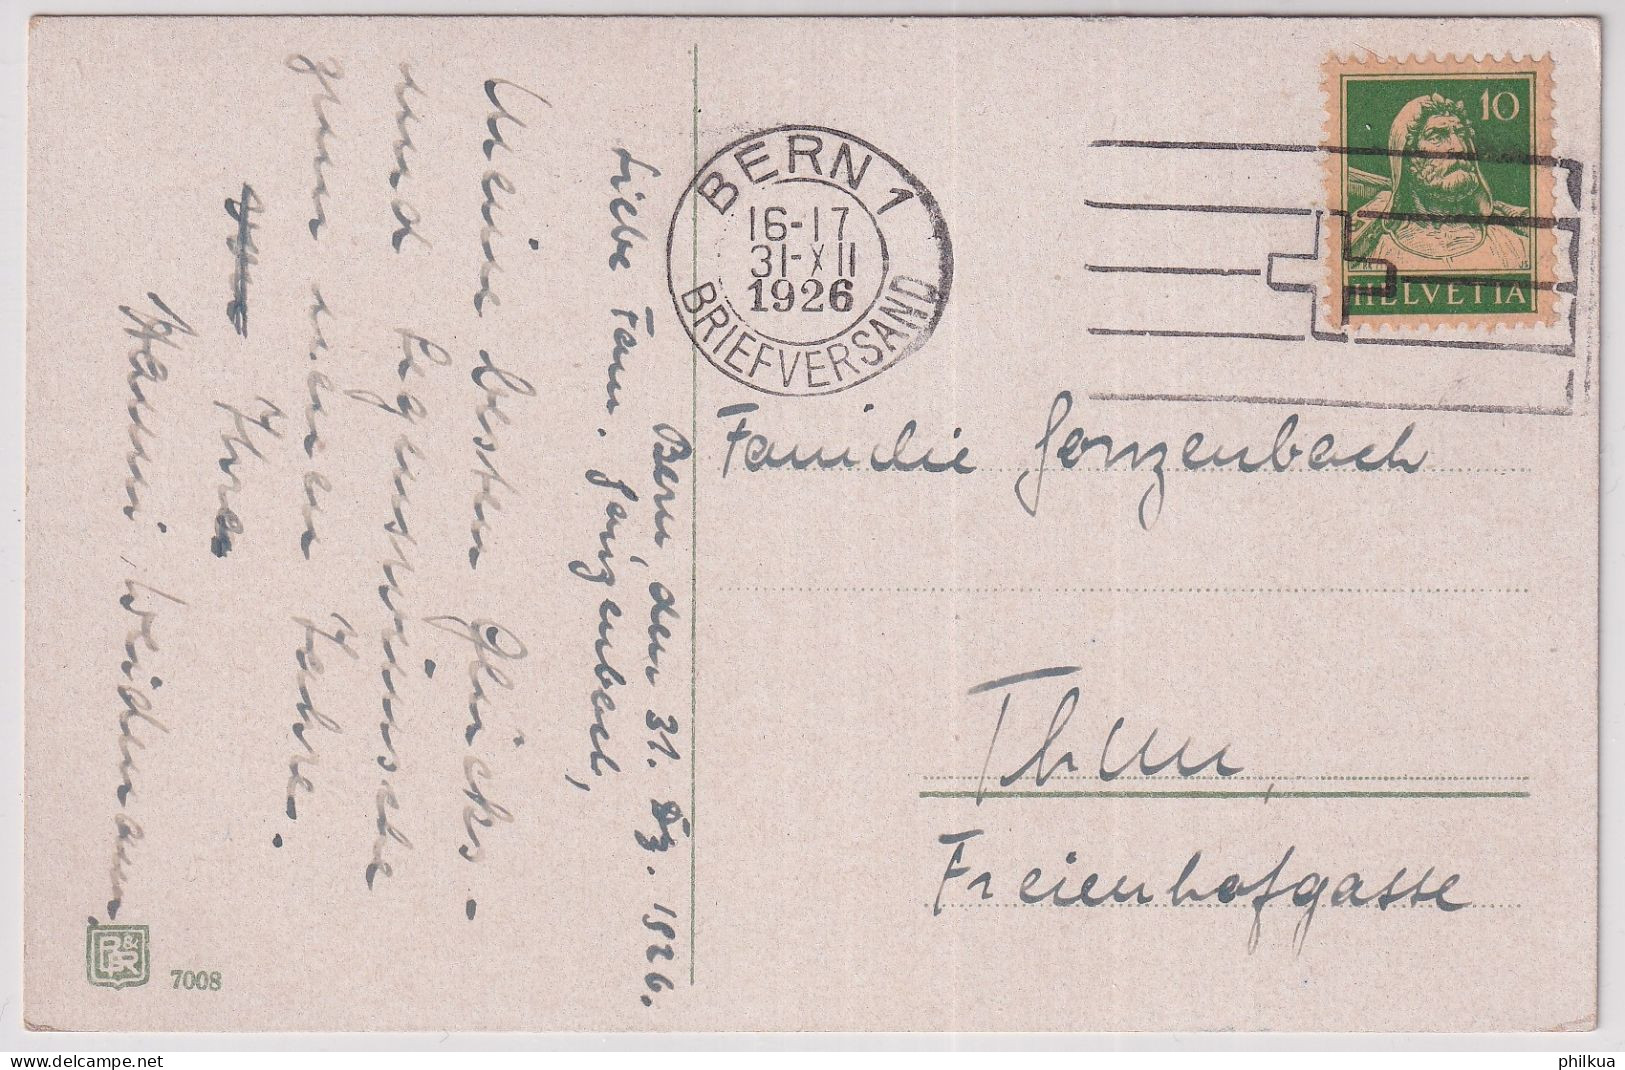 Bern, den 31. Dz. 1926.
Liebe Fam. Gonzenbach,
Meine besten Glücks-
und Segenswünsche
zum neuen Jahre.
Ihre
Hanni Weidenmann.
P&R
7008
BERN 1
16-17
31-XII
1926
BRIEFVERSAND
10
HELVETIA
Familie Gonzenbach
Thun,
Freienhofgasse
www.delcampe.net
philkua